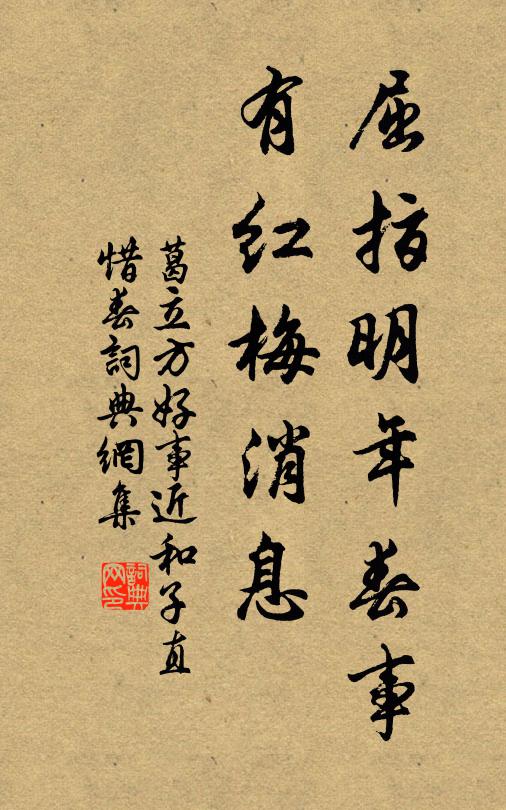 屈指明年春事
有红梅消息
葛立方好事近和子直
惜春詞典網集
詞典网印